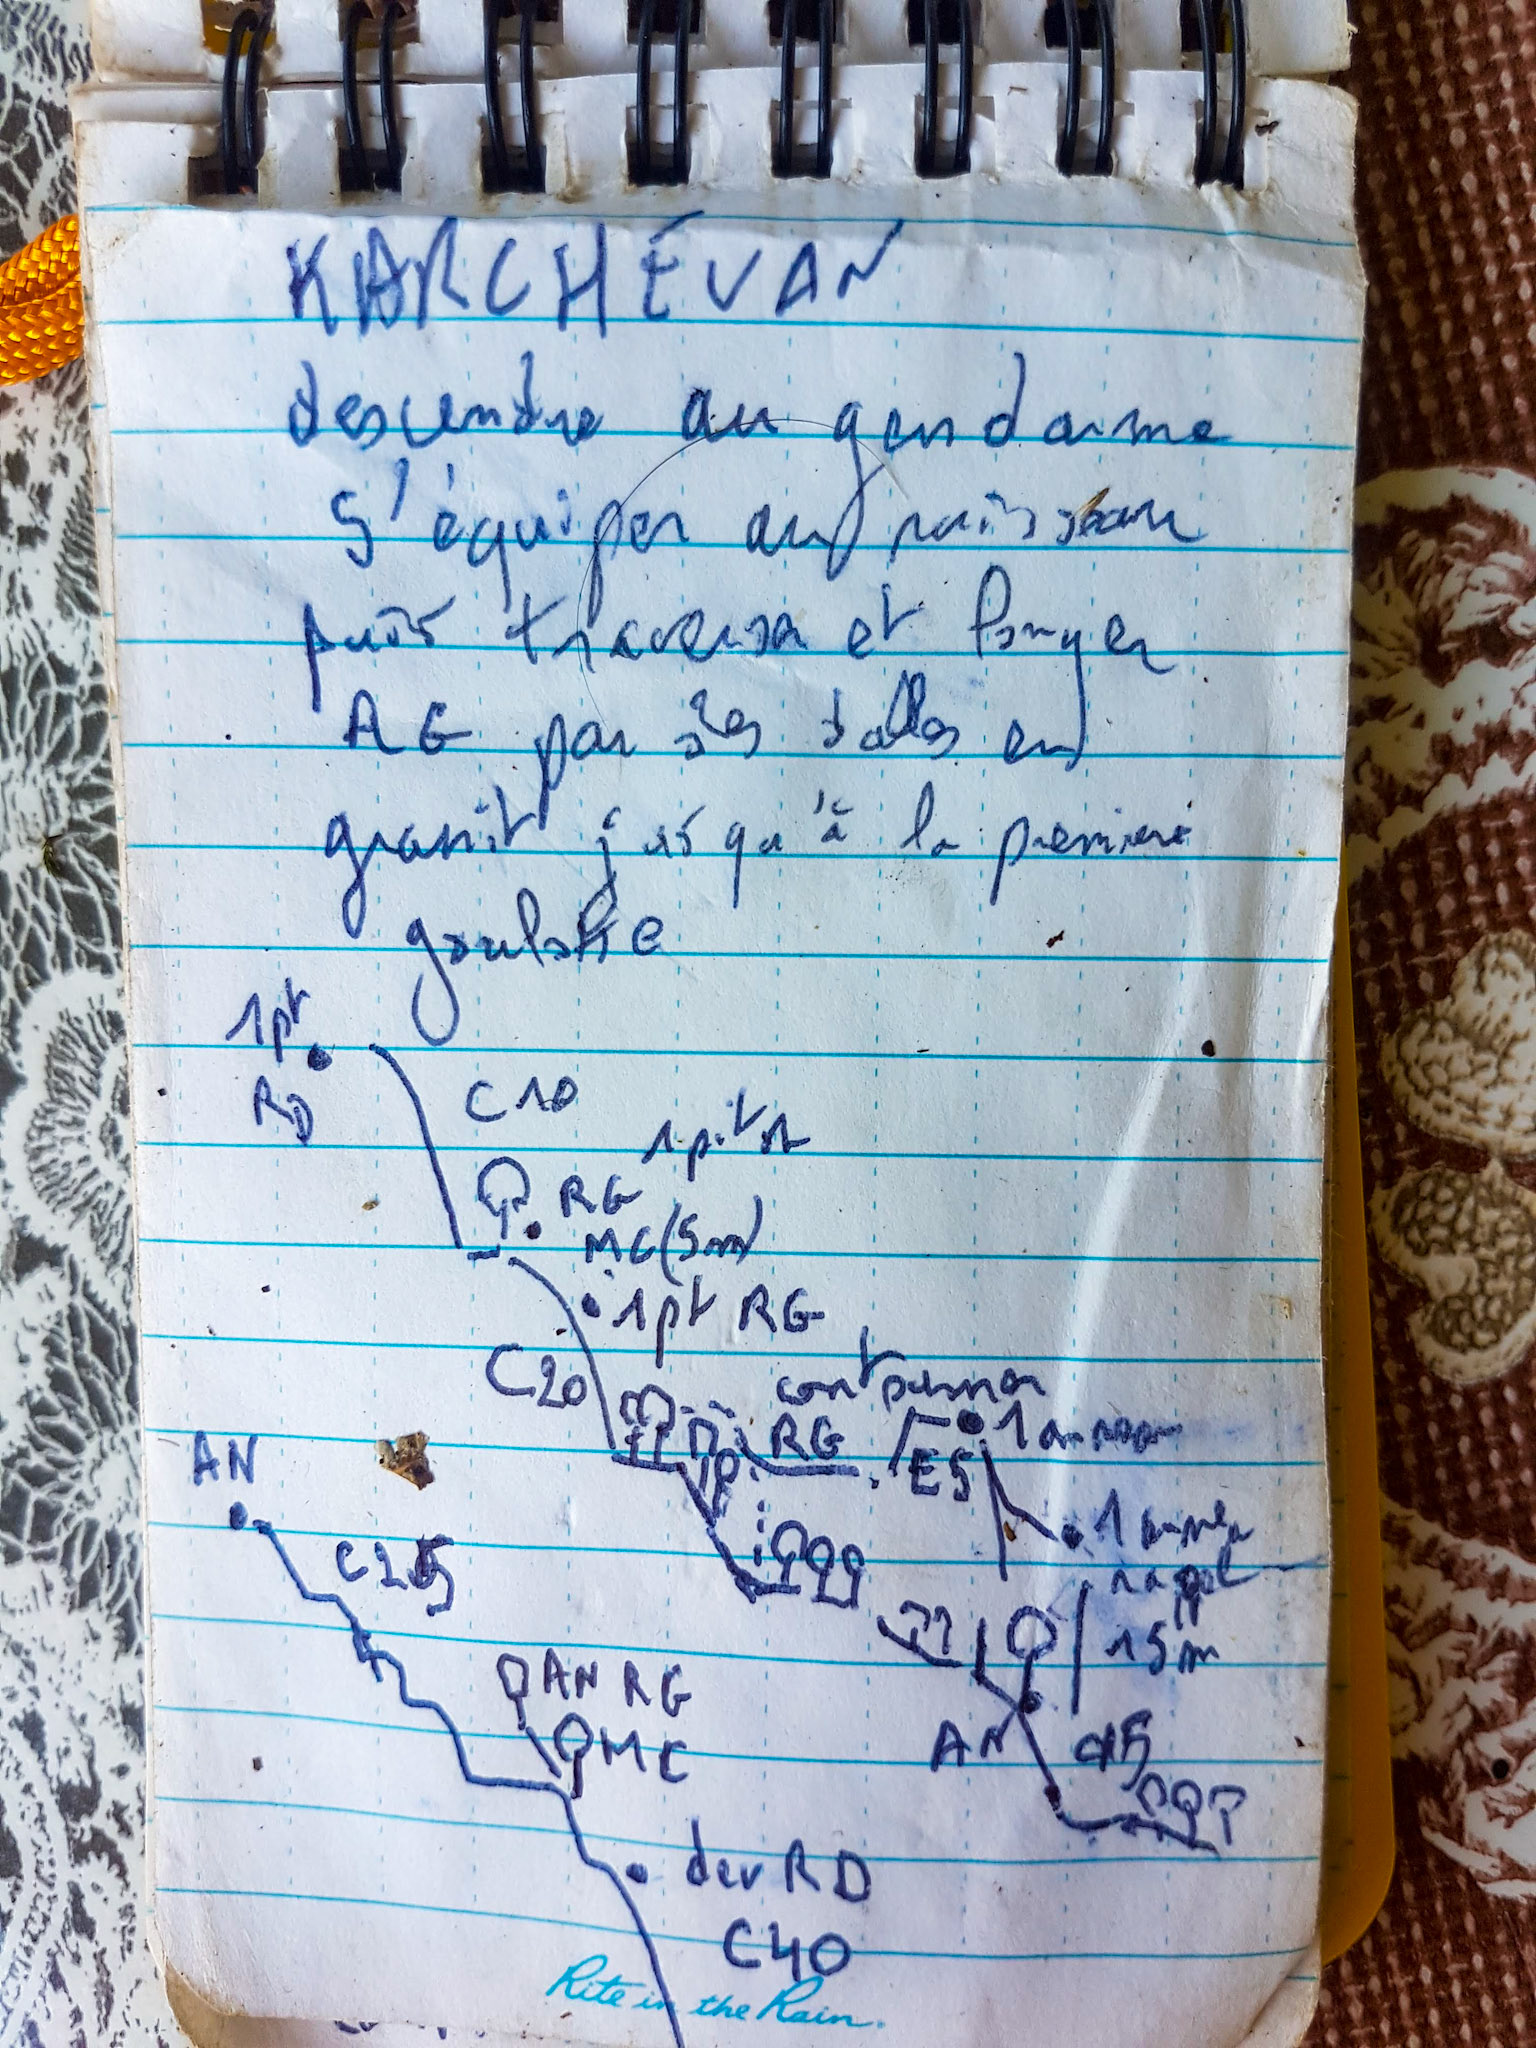 KARCHÉVAN
descendre au gendarme
s'équiper au ruisseau
puis traverser et longer
RG par des dalles en
granit jusqu'à la première
goulotte
1pt
RD
C10
1 piton
RG
MC (5m)
1pt RG
C20
contourner
RG
E5
1 anneau
1 anneau
rappel
15m
AN
C25
AN RG
MC
AN
C15
dev RD
C40
Rite in the Rain.